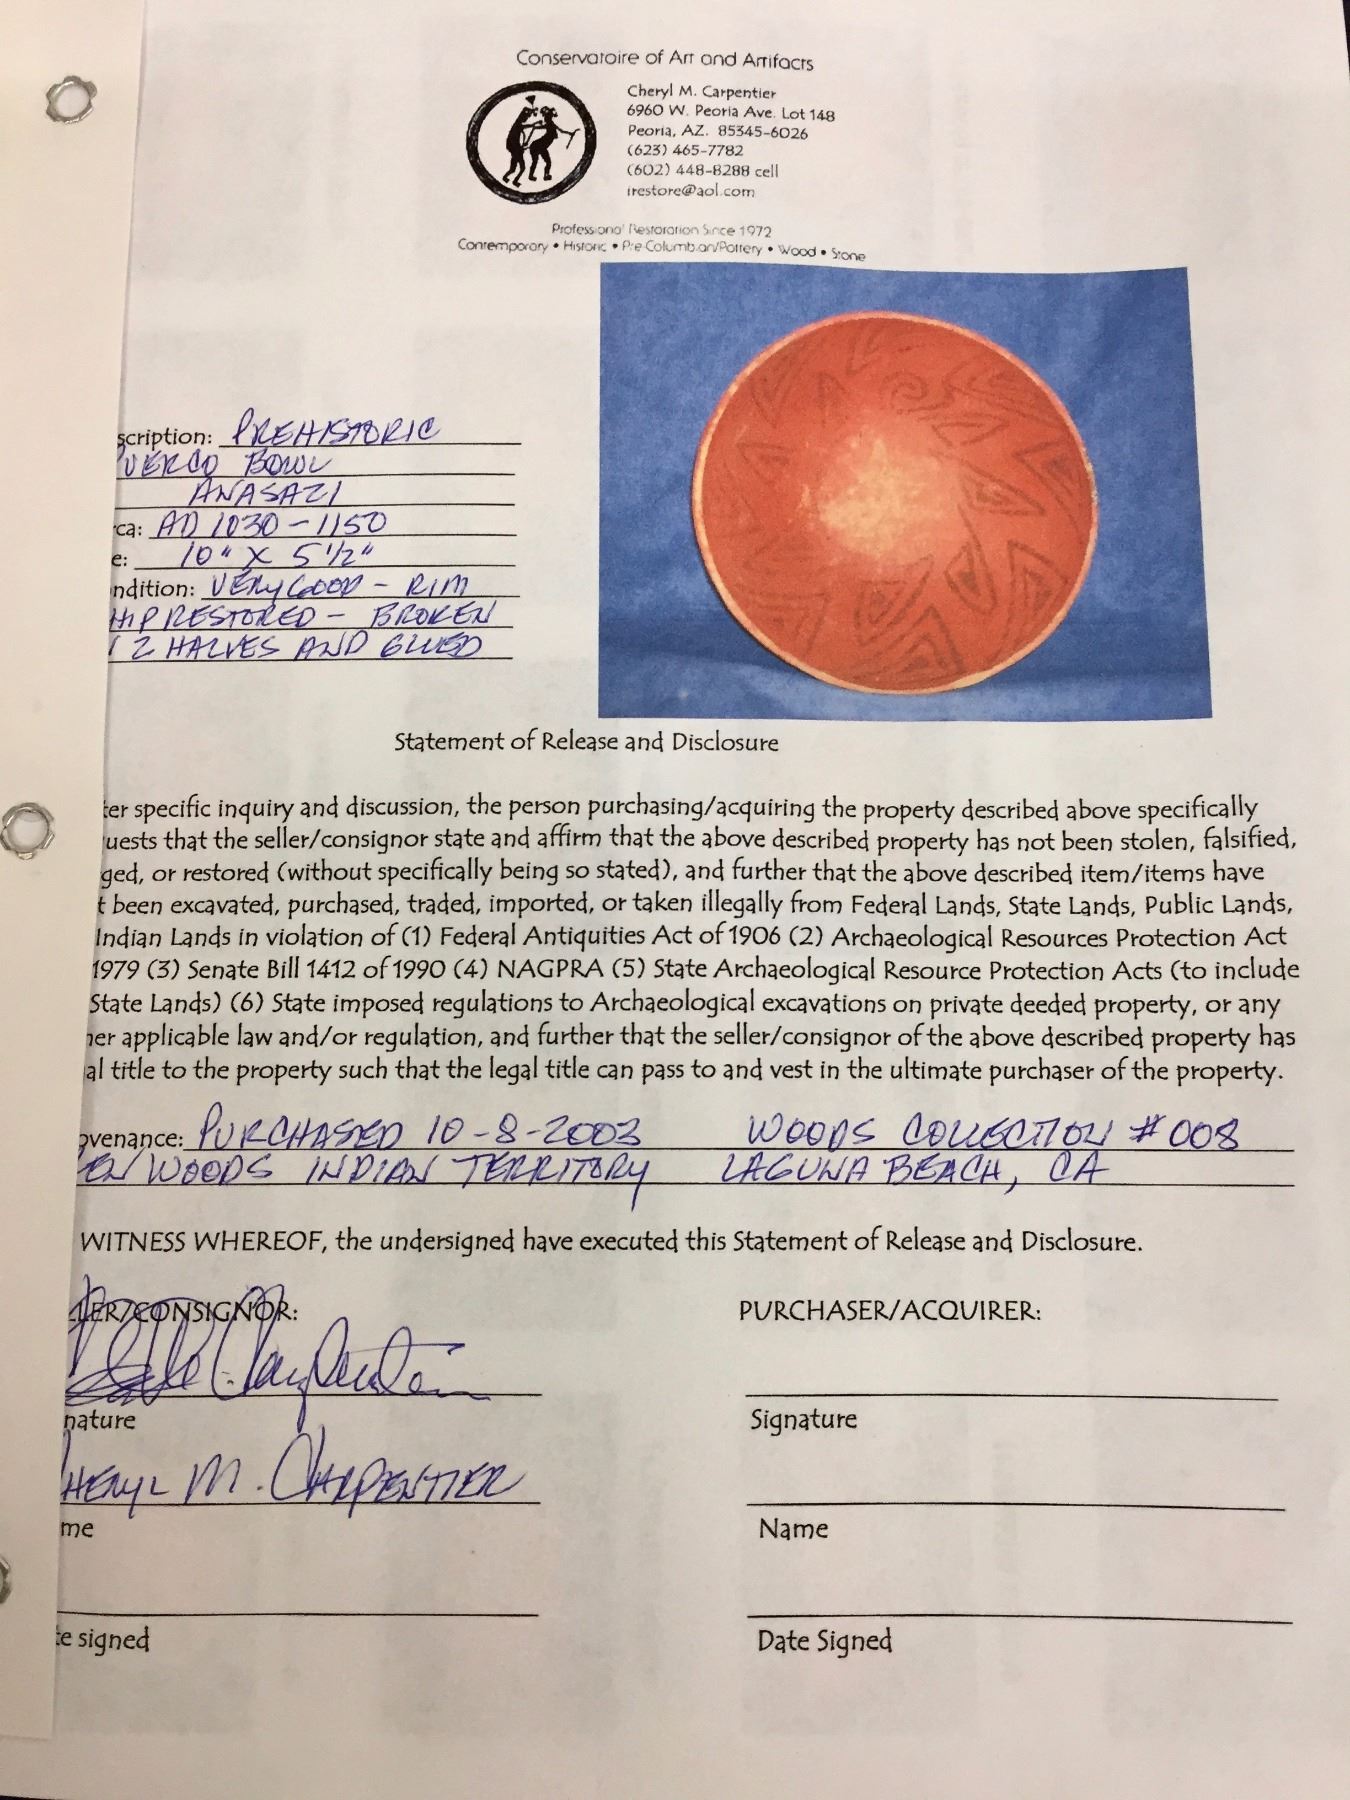 Conservatoire of Art and Artifacts
Cheryl M. Carpentier
6960 W. Peoria Ave. Lot 148
Peoria, AZ. 85345-6026
(623) 465-7782
(602) 448-8288 cell
irestore@aol.com
Professional Restoration Since 1972
Contemporary • Historic • Pre-Columbian/Pottery • Wood • Stone
scription: PREHISTORIC
UERCO BOWL
ANASAZI
ca: AD 1030-1150
e: 10" X 5 1/2"
ndition: VERY GOOD - RIM
HIP RESTORED - BROKEN
2 HALVES AND GLUED
Statement of Release and Disclosure
ter specific inquiry and discussion, the person purchasing/acquiring the property described above specifically
uests that the seller/consignor state and affirm that the above described property has not been stolen, falsified,
ged, or restored (without specifically being so stated), and further that the above described item/items have
t been excavated, purchased, traded, imported, or taken illegally from Federal Lands, State Lands, Public Lands,
Indian Lands in violation of (1) Federal Antiquities Act of 1906 (2) Archaeological Resources Protection Act
1979 (3) Senate Bill 1412 of 1990 (4) NAGPRA (5) State Archaeological Resource Protection Acts (to include
State Lands) (6) State imposed regulations to Archaeological excavations on private deeded property, or any
her applicable law and/or regulation, and further that the seller/consignor of the above described property has
al title to the property such that the legal title can pass to and vest in the ultimate purchaser of the property.
ovenance: PURCHASED 10-8-2003 WOODS COLLECTION #008
EN WOODS INDIAN TERRITORY LAGUNA BEACH, CA
WITNESS WHEREOF, the undersigned have executed this Statement of Release and Disclosure.
LER/CONSIGNOR:
PURCHASER/ACQUIRER:
nature
Signature
HERYL M. CARPENTIER
me
Name
te signed
Date Signed